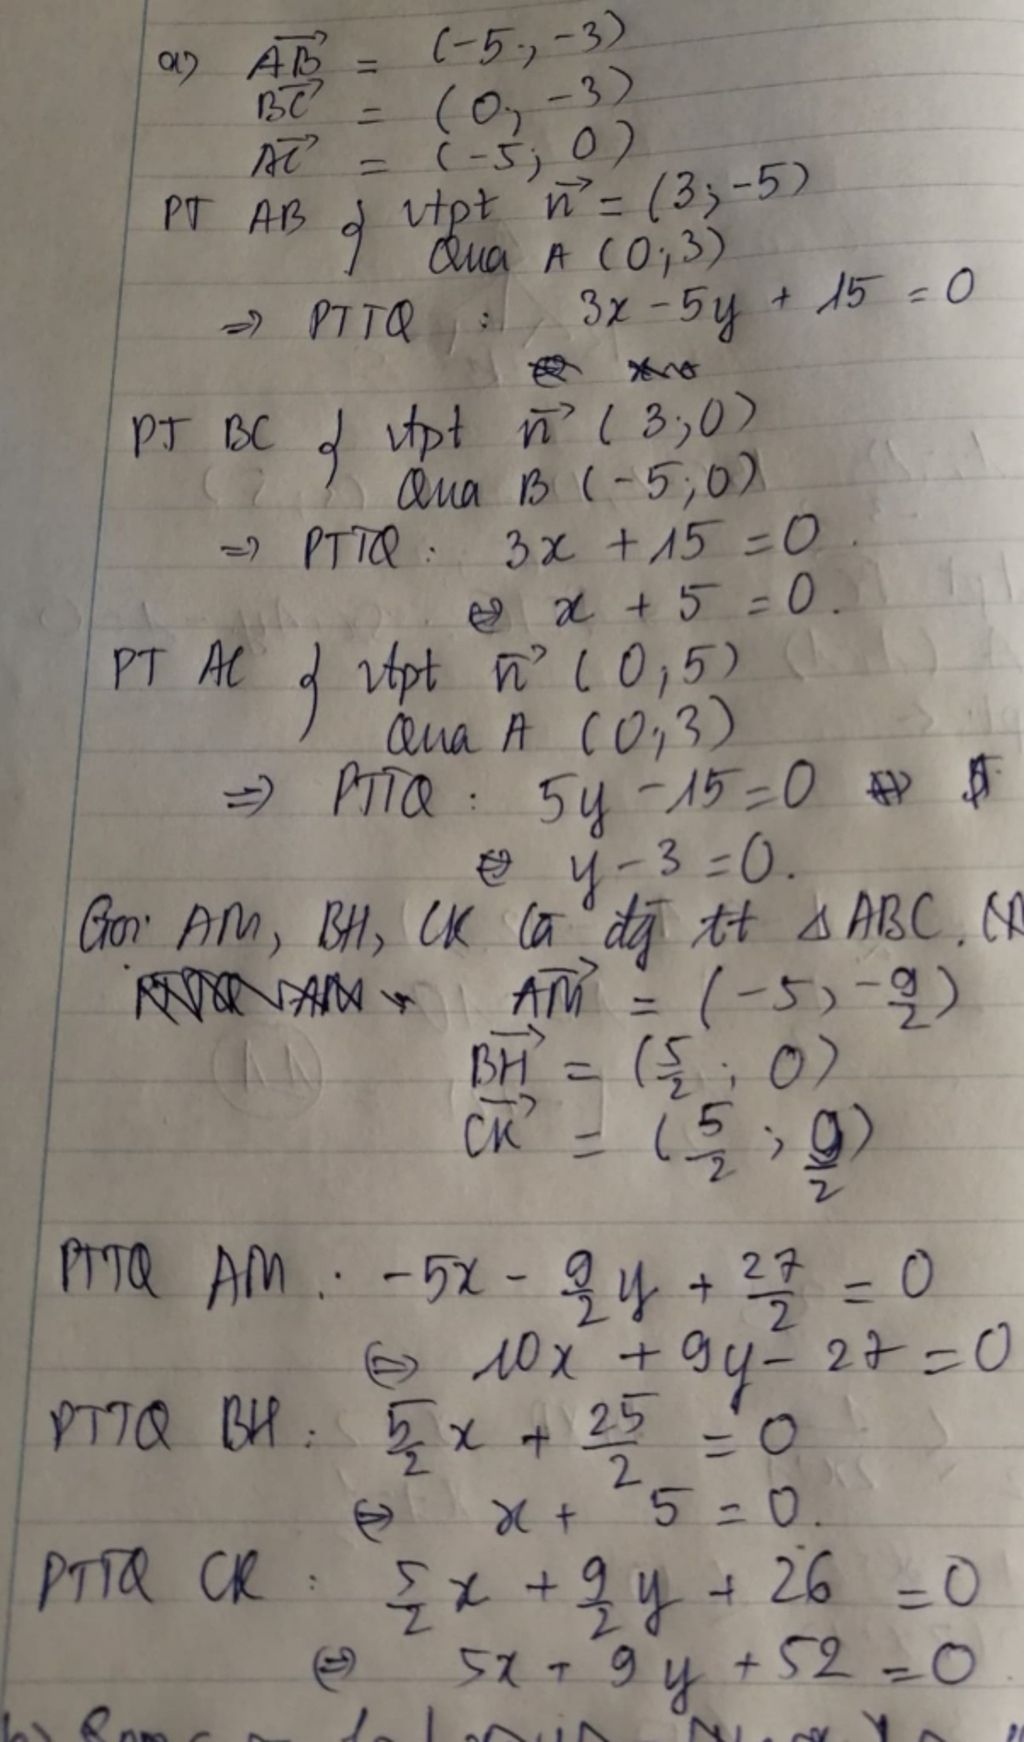 a) AB→ = (-5; -3)
BC→ = (0; -3)
AC→ = (-5; 0)
PT AB { vtpt n→ = (3; -5)
Qua A (0; 3)
⇒ PTTQ : 3x - 5y + 15 = 0
PT BC { vtpt n→ (3; 0)
Qua B (-5; 0)
⇒ PTTQ : 3x + 15 = 0.
⇔ x + 5 = 0.
PT AC { vtpt n→ (0; 5)
Qua A (0; 3)
⇒ PTTQ : 5y - 15 = 0 ⇔
⇔ y - 3 = 0.
Gọi AM, BH, CK là đg tt Δ ABC.
AM→ = (-5; -9/2)
BH→ = (5/2; 0)
CK→ = (5/2; 9/2)
PTTQ AM : -5x - 9/2 y + 27/2 = 0
⇔ 10x + 9y - 27 = 0
PTTQ BH : 5/2 x + 25/2 = 0
⇔ x + 5 = 0.
PTTQ CK : 5/2 x + 9/2 y + 26 = 0
⇔ 5x + 9y + 52 = 0